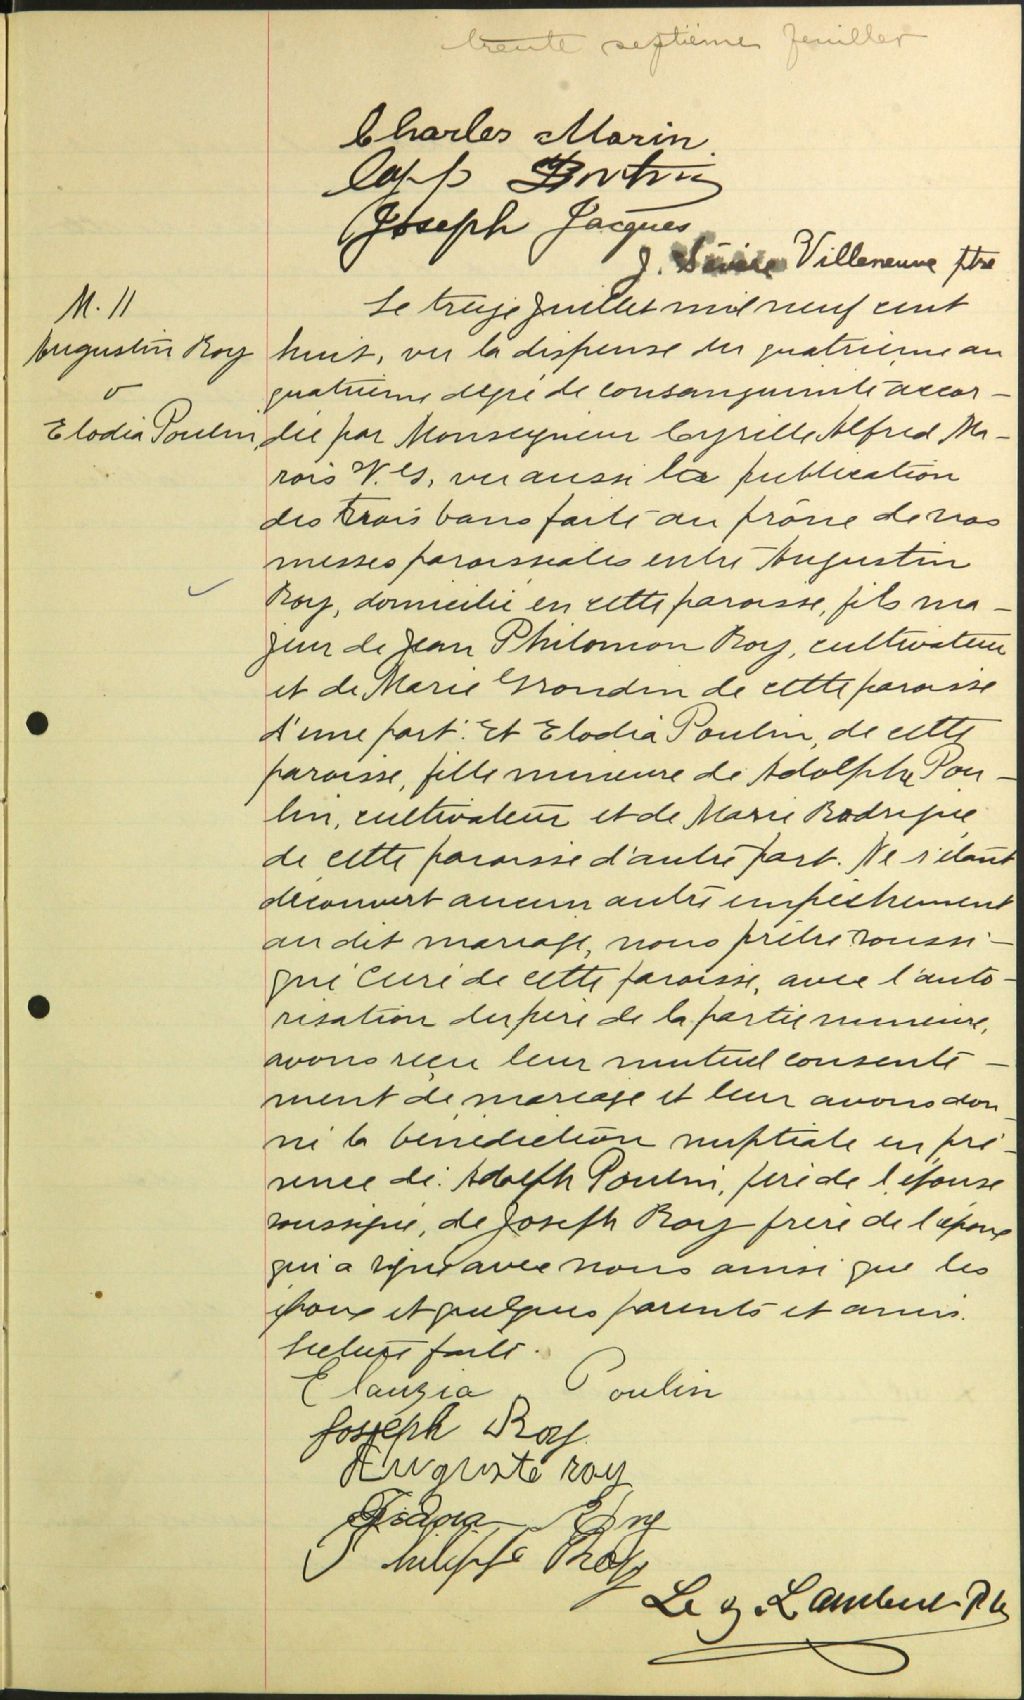 trente septième feuillet
Charles Morin
Capp Boutin
Joseph Jacques
J. Sévère Villeneuve ptre
M. 11
Augustin Roy
&
Elodia Poulin
Le treize juillet mil neuf cent
huit, vu la dispense du quatrième au
quatrième degré de consanguinité accor-
dée par Monseigneur Cyrille Alfred Ma-
rois V. G, vu aussi la publication
des trois bans faite au prône de nos
messes paroissiales entre Augustin
Roy, domicilié en cette paroisse, fils ma-
jeur de Jean Philomon Roy, cultivateur
et de Marie Grondin de cette paroisse
d'une part: Et Elodia Poulin, de cette
paroisse, fille mineure de Adolphe Pou-
lin, cultivateur et de Marie Rodrigue
de cette paroisse d'autre part. Ne s'étant
découvert aucun autre empêchement
au dit mariage, nous prêtre soussi-
gné curé de cette paroisse, avec l'auto-
risation du père de la partie mineure,
avons reçu leur mutuel consente-
ment de mariage et leur avons don-
né la bénédiction nuptiale en pré-
sence de: Adolph Poulin, père de l'épouse
soussigné, de Joseph Roy frère de l'époux
qui a signé avec nous ainsi que les
époux et quelques parents et amis.
Lecture faite.
Elauzia Poulin
Joseph Roy
Auguste roy
Roy
Philippe Roy
Le g. Lambert Ptre